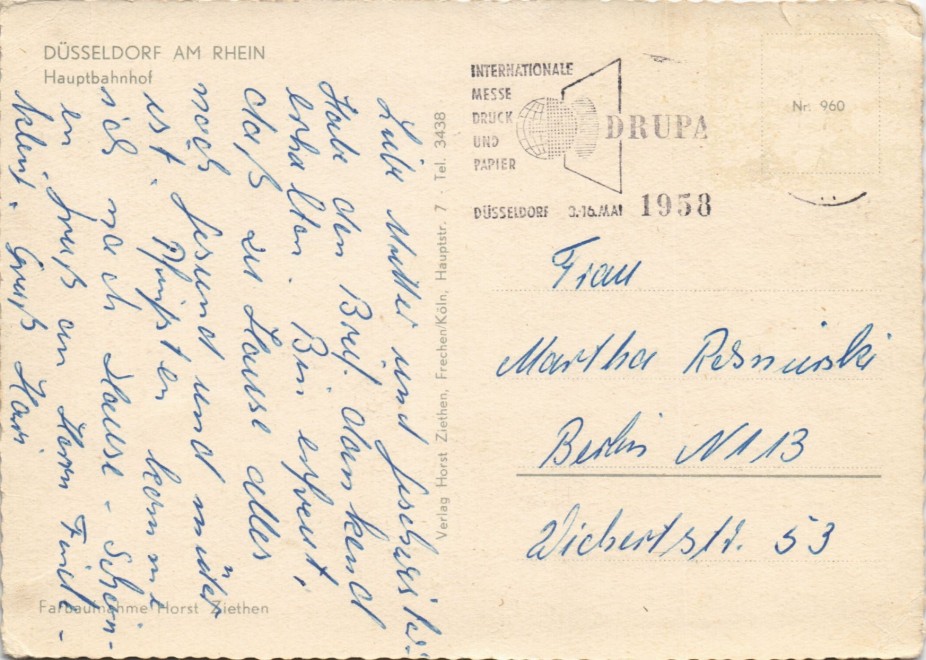 DÜSSELDORF AM RHEIN
Hauptbahnhof
Liebe Mutter und
Habe den Brief dankend
erhalten. Bin erfreut,
daß zu Hause alles
noch gesund und munter
ist. Pfingsten komme
ich nach Hause. Schön-
en Gruß an Herrn
Gruß
Farbaufnahme Horst Ziethen
Verlag Horst Ziethen, Frechen/Köln, Hauptstr. 7 · Tel. 3438
INTERNATIONALE
MESSE
DRUCK
UND
PAPIER
DRUPA
DÜSSELDORF 3.-16. MAI 1958
Nr. 960
Frau
Martha
Berlin N 113
Wichertstr. 53